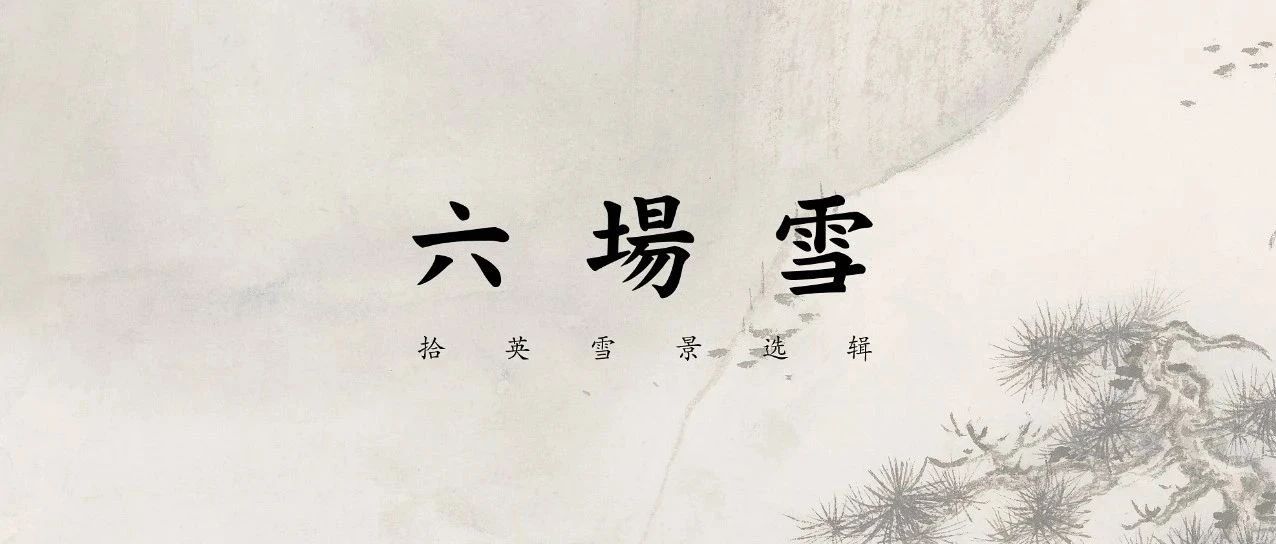 六場雪
拾英雪景选辑